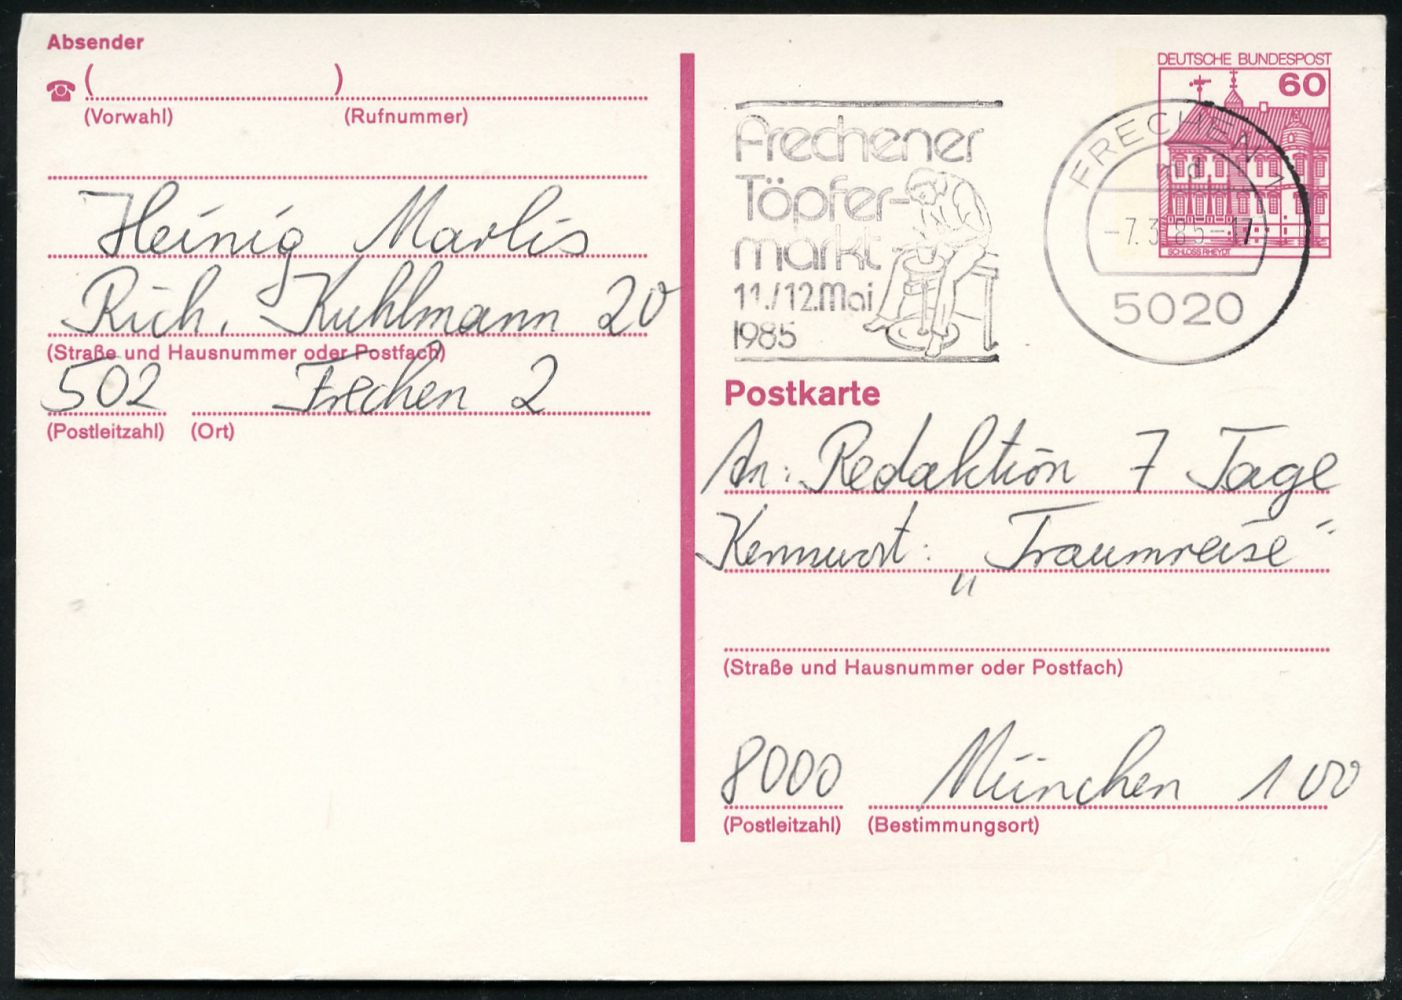 Absender
( )
(Vorwahl) (Rufnummer)
Heinig Marlis
Rich. Kuhlmann 20
(Straße und Hausnummer oder Postfach)
502 Frechen 2
(Postleitzahl) (Ort)
Frechener
Töpfer-
markt
11./12.Mai
1985
FRECHEN 1
md
-7.3.85-17
5020
DEUTSCHE BUNDESPOST
60
SCHLOSS RHEYDT
Postkarte
An: Redaktion 7 Tage
Kennwort: „Traumreise"
(Straße und Hausnummer oder Postfach)
8000 München 100
(Postleitzahl) (Bestimmungsort)